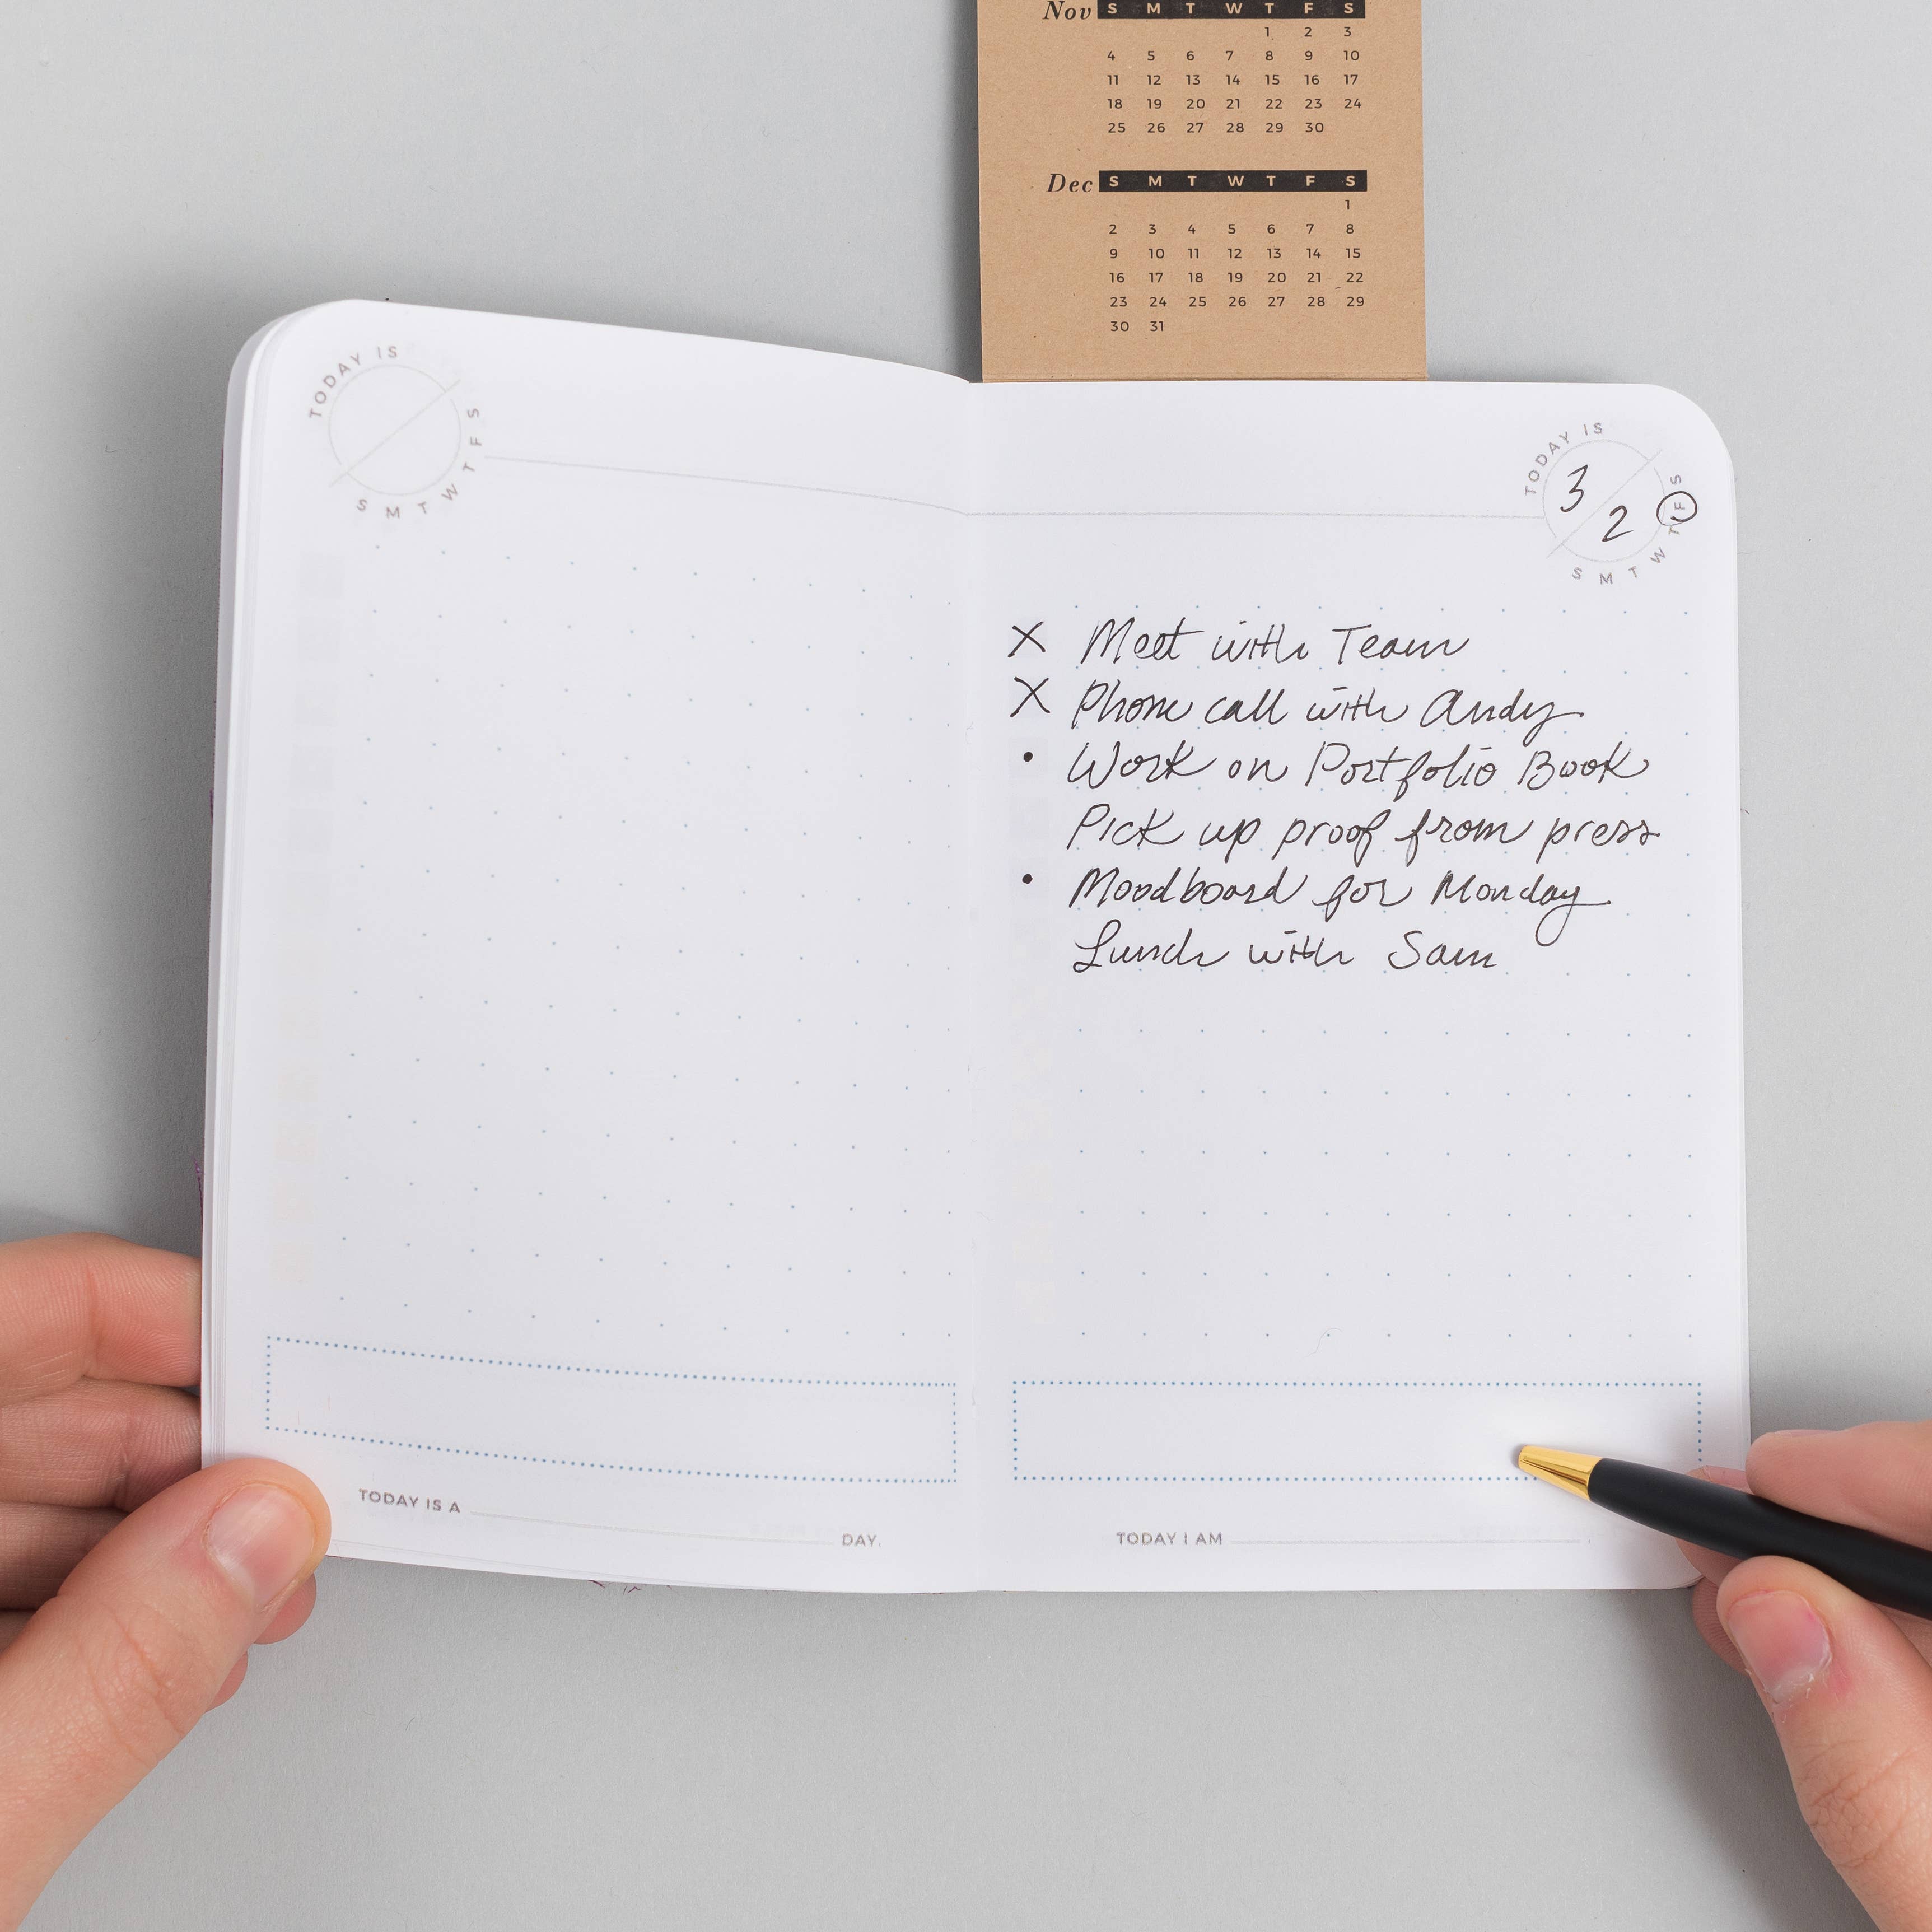 Nov S M T W T F S
1 2 3
4 5 6 7 8 9 10
11 12 13 14 15 16 17
18 19 20 21 22 23 24
25 26 27 28 29 30
Dec S M T W T F S
1
2 3 4 5 6 7 8
9 10 11 12 13 14 15
16 17 18 19 20 21 22
23 24 25 26 27 28 29
30 31
TODAY IS
S M T W T F S
TODAY IS A
DAY.
TODAY IS
3
2
S M T W T F S
X Meet with Team
X Phone call with Andy
• Work on Portfolio Book
Pick up proof from press
• Moodboard for Monday
Lunch with Sam
TODAY I AM